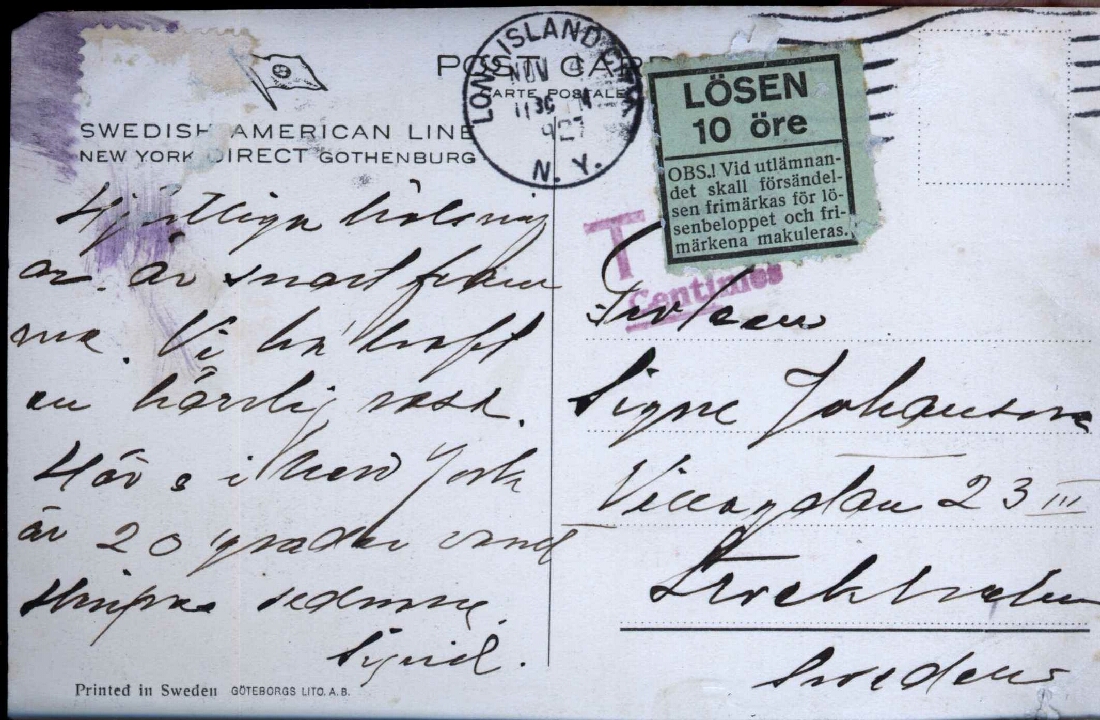 POST CARD
CARTE POSTALE
SWEDISH AMERICAN LINE
NEW YORK DIRECT GOTHENBURG
LONG ISLAND CITY
NOV 1
1130
1927
N.Y.
LÖSEN
10 öre
OBS.! Vid utlämnan-
det skall försändel-
sen frimärkas för lö-
senbeloppet och fri-
märkena makuleras.
T
Centimes
Hjärtliga hälsning
ar. är snart fram
me. Vi ha haft
en härlig resa.
Här i New York
är 20 grader
Sigrid.
Fröken
Signe Johansson
23 III
Stockholm
Sweden
Printed in Sweden GÖTEBORGS LITO. A.B.